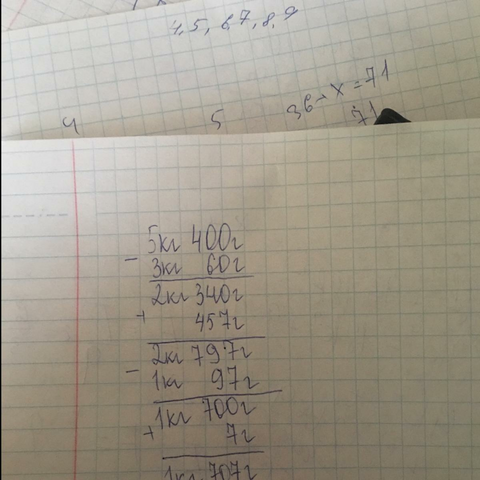 4, 5, 6 7, 8, 9
36 - x = 71
71
4 5
5кг 400г
- 3кг 60г
2кг 340г
+ 457г
2кг 797г
- 1кг 97г
1кг 700г
+ 7г
1кг 707г